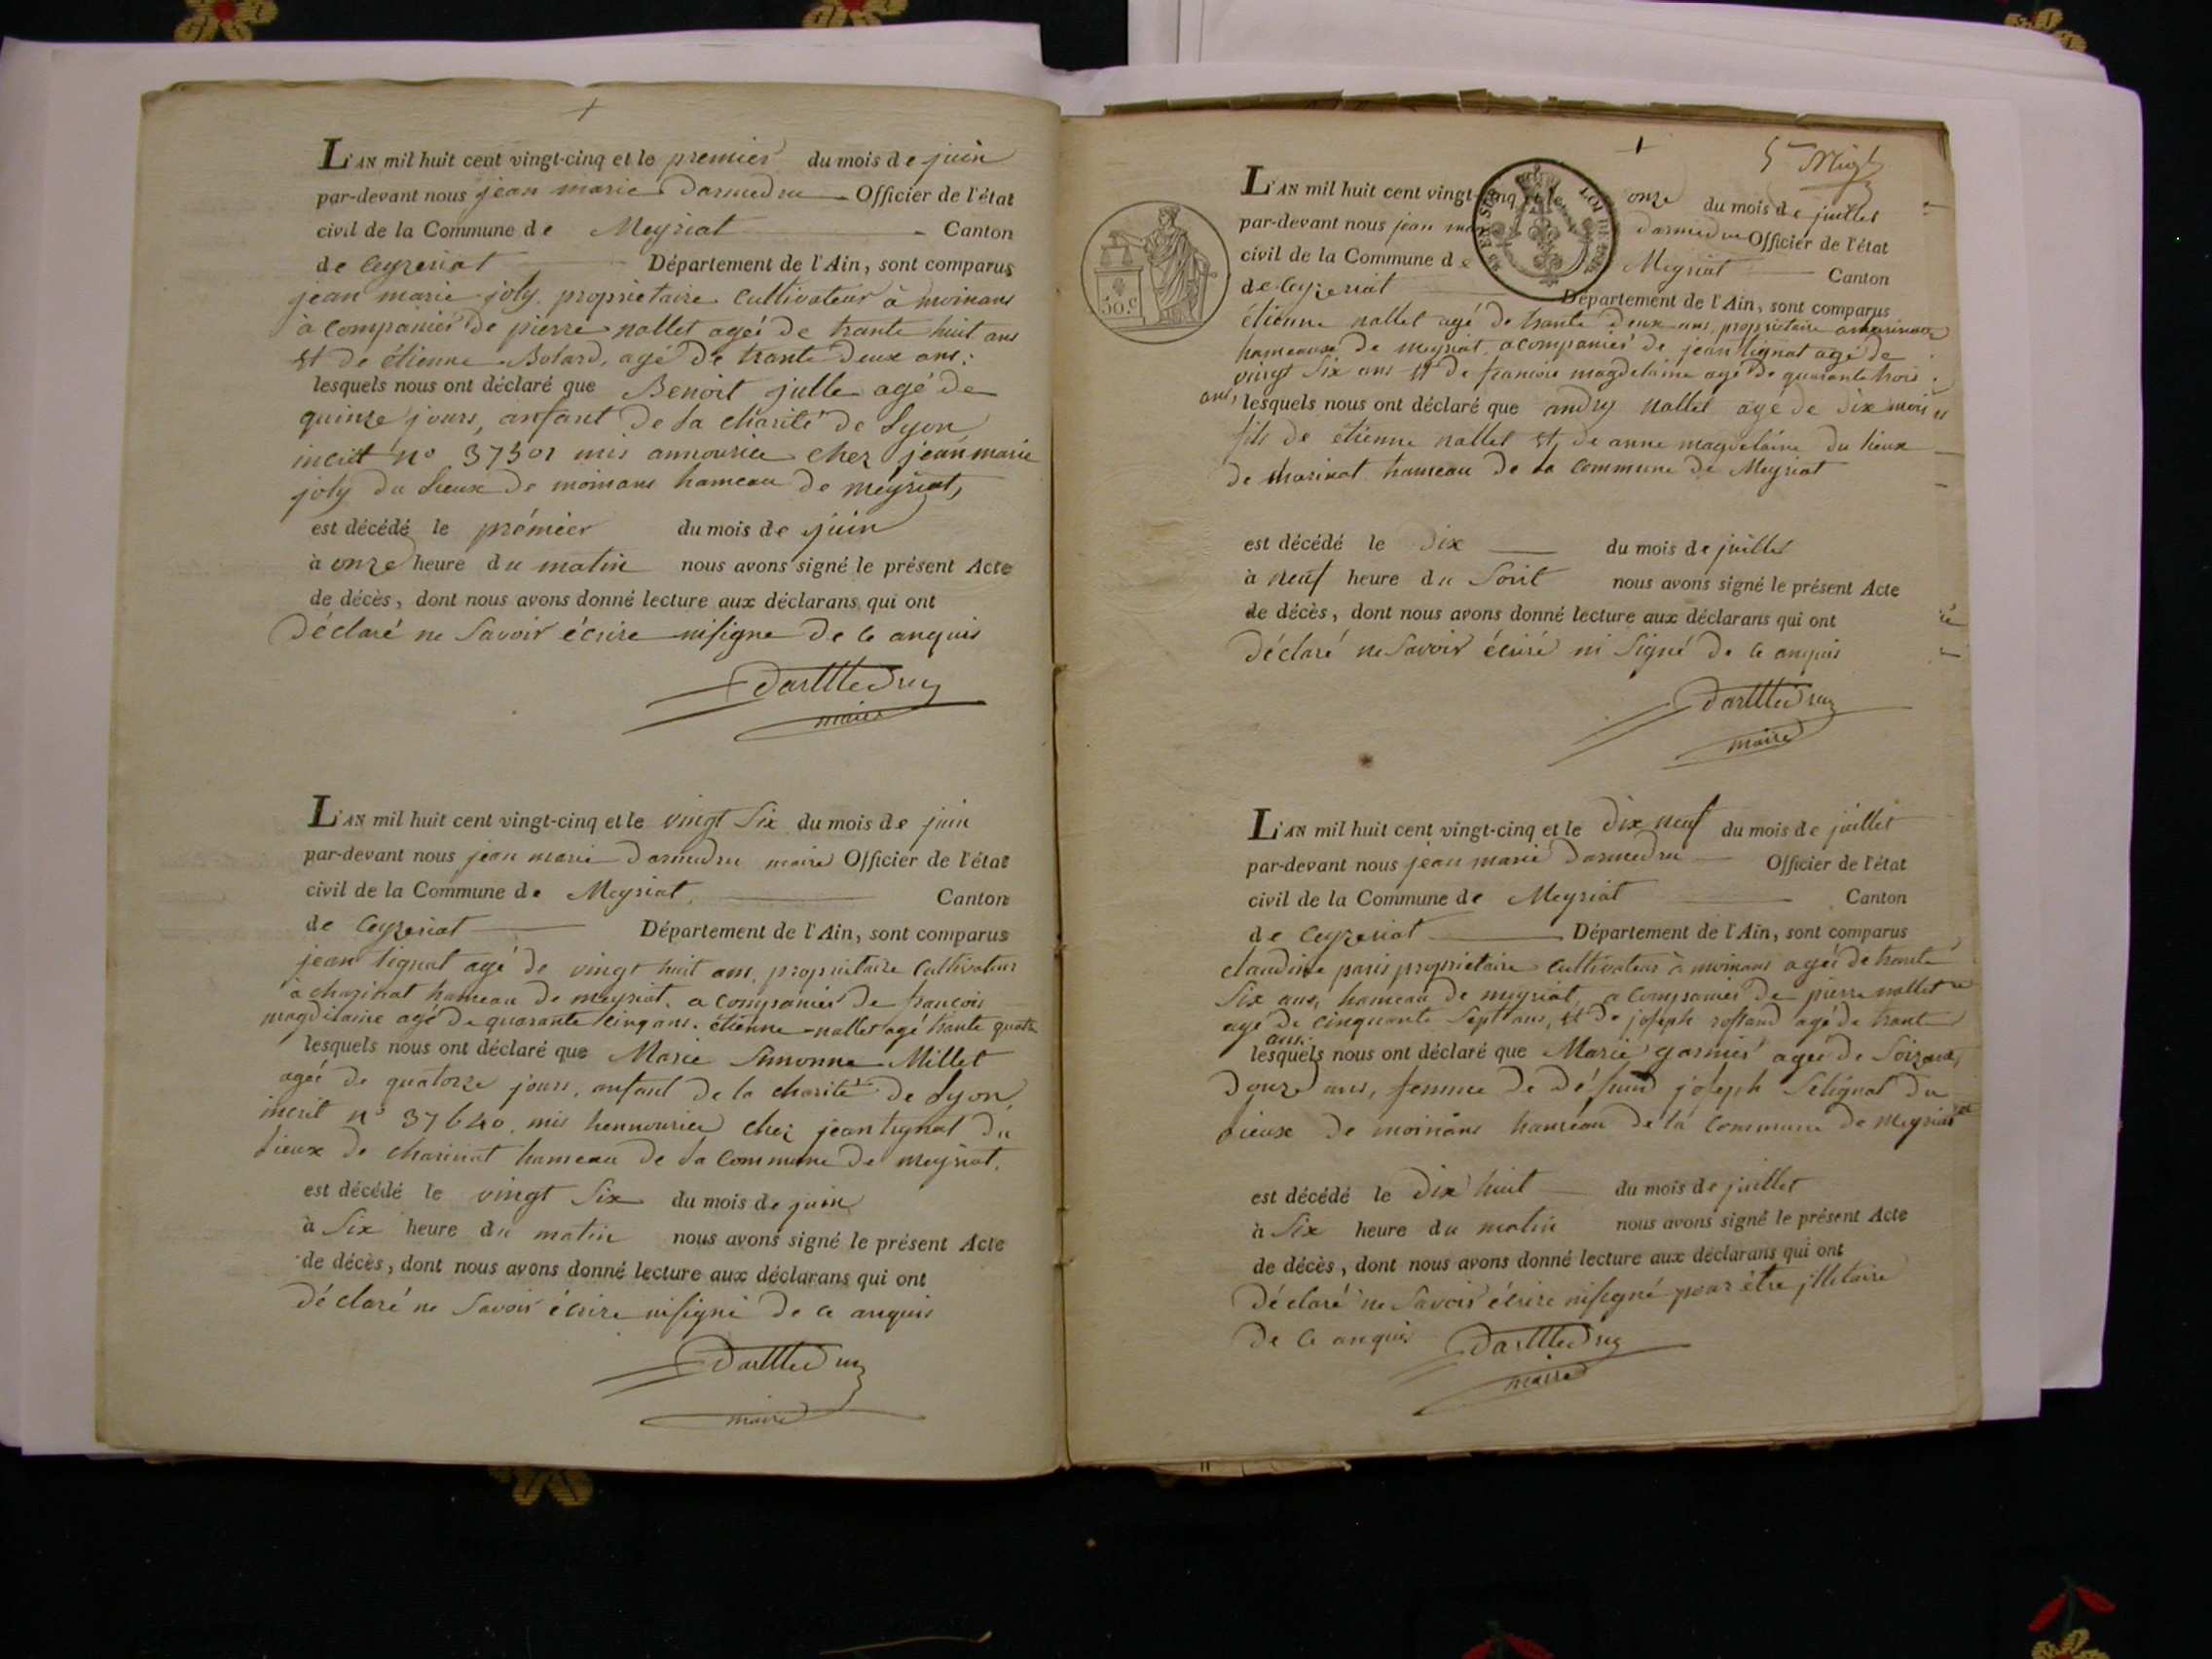 L'AN mil huit cent vingt-cinq et le premier du mois de juin
par-devant nous jean marie darmedru Officier de l'état
civil de la Commune de Meyriat Canton
de Ceyzeriat Département de l'Ain, sont comparus
jean marie joly proprietaire Cultivateur à moinans
à companier de pierre nallet ageé de trante huit ans
et de étienne Bolard, agé de trante deux ans:
lesquels nous ont déclaré que Benoit julle agé de
quinze jours, anfant De la charité de Lyon
incrit no 37501 mis annourice chez jean marie
joly du Lieux De moinans hameau de meyriat,
est décédé le prémier du mois de juin
à onze heure du matin nous avons signé le présent Acte
de décès, dont nous avons donné lecture aux déclarans qui ont
Déclaré ne Savoir écrire nisigne De ce anquis
Darmedru
maire
L'AN mil huit cent vingt-cinq et le vingt Six du mois de juin
par-devant nous jean marie darmedru maire Officier de l'état
civil de la Commune de Meyriat Canton
de Ceyzeriat Département de l'Ain, sont comparus
jean tignat agé de vingt huit ans, proprietaire Cultivateur
à charinat hameau de meyriat, a companier de francois
magdelaine agé De quarante cinq ans. étienne nallet agé trante quatre
lesquels nous ont déclaré que Marie Simonne Millet
ageé de quatorze jours, anfant De la charité De Lyon
incrit no 37640. mis hennourice chez jean tignat Du
Lieux De charinat hameau De La Commune De meyriat.
est décédé le vingt Six du mois de juin
à Six heure du matin nous avons signé le présent Acte
de décès, dont nous avons donné lecture aux déclarans qui ont
Déclaré ne Savoir écrire nisigné De ce anquis
Darmedru
maire
5me
L'AN mil huit cent vingt-cinq et le onze du mois de juillet
par-devant nous jean darmedru Officier de l'état
civil de la Commune de Meyriat Canton
de Ceyzeriat Département de l'Ain, sont comparus
50.c
étienne nallet agé De trante Deux ans, proprietaire
hameause De meyriat, acompanier De jean tignat agé De
vingt Six ans et De francois magdelaine agé De quarante trois
ans, lesquels nous ont déclaré que andry nallet agé de Dix mois
fils De étienne nallet et, De anne magdelaine Du lieux
De charinat hameau De La Commune De Meyriat
est décédé le Dix du mois de juillet
à neuf heure du Soirt nous avons signé le présent Acte
de décès, dont nous avons donné lecture aux déclarans qui ont
Déclaré ne Savoir écriré ni Signé De Ce anquis
Darmedru
maire
L'AN mil huit cent vingt-cinq et le Dix neuf du mois de juillet
par-devant nous jean marie Darmedru Officier de l'état
civil de la Commune de Meyriat Canton
de Ceyzeriat Département de l'Ain, sont comparus
claudine paris proprietaire Cultivateur à moinans ageé De trante
Six ans, hameau De meyriat, a companier De pierre nallet
agé De Cinquante Sept ans, et De joseph rostand agé De trant
ans.
lesquels nous ont déclaré que Marie garnier ageé De Soizante
Douze ans, femme De Défund joseph SeLignat Du
Lieux De moinans hameau De la Commune De meyriat
est décédé le Dix huit du mois de juillet
à Six heure du matin nous avons signé le présent Acte
de décès, dont nous avons donné lecture aux déclarans qui ont
Déclaré ne Savoir écrire nisigné pour être jlletaire
De Ce anquis Darmedru
maire